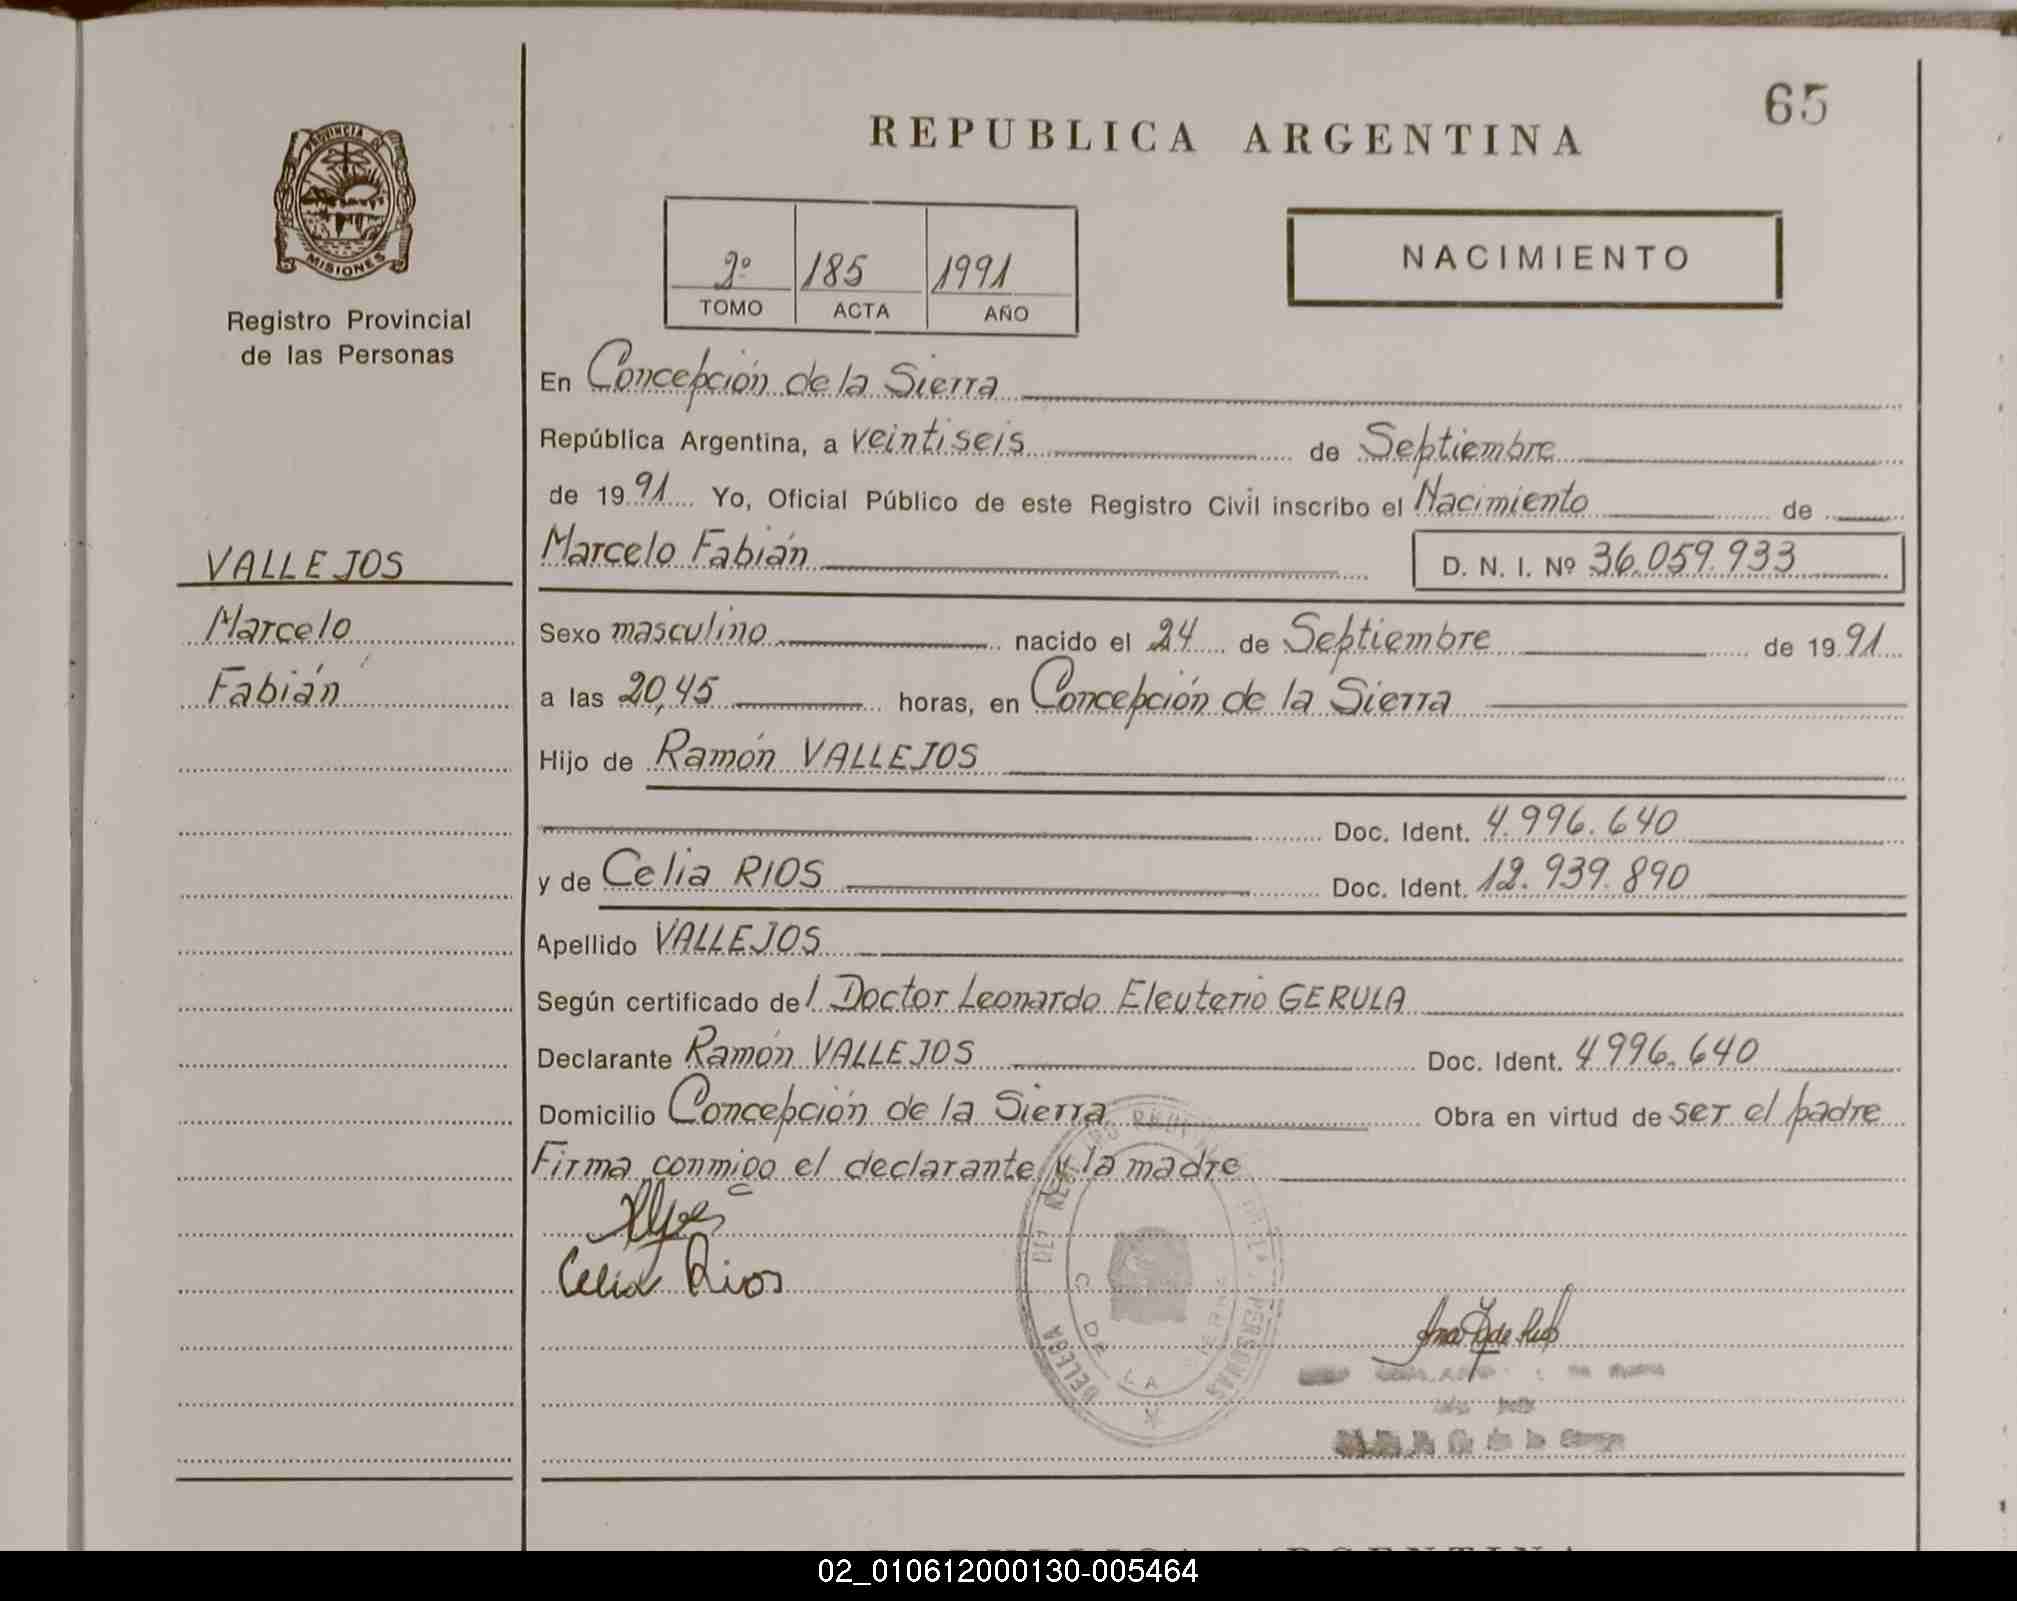 65
REPUBLICA ARGENTINA
PROVINCIA DE
MISIONES
Registro Provincial
de las Personas
2º 185 1991
TOMO ACTA AÑO
NACIMIENTO
En Concepción de la Sierra
República Argentina, a veintiseis de Septiembre
de 1991 Yo, Oficial Público de este Registro Civil inscribo el Nacimiento de
Marcelo Fabián D. N. I. Nº 36.059.933
VALLEJOS
Marcelo
Fabián
Sexo masculino nacido el 24 de Septiembre de 1991
a las 20,45 horas, en Concepción de la Sierra
Hijo de Ramón VALLEJOS
Doc. Ident. 4.996.640
y de Celia RIOS Doc. Ident. 12.939.890
Apellido VALLEJOS
Según certificado del Doctor Leonardo Eleuterio GERULA
Declarante Ramón VALLEJOS Doc. Ident. 4996.640
Domicilio Concepción de la Sierra Obra en virtud de ser el padre
Firma conmigo el declarante y la madre
Celia Rios
DE LA PERSONAS
C. DE LA
de la Sierra
REPUBLICA ARGENTINA
02_010612000130-005464